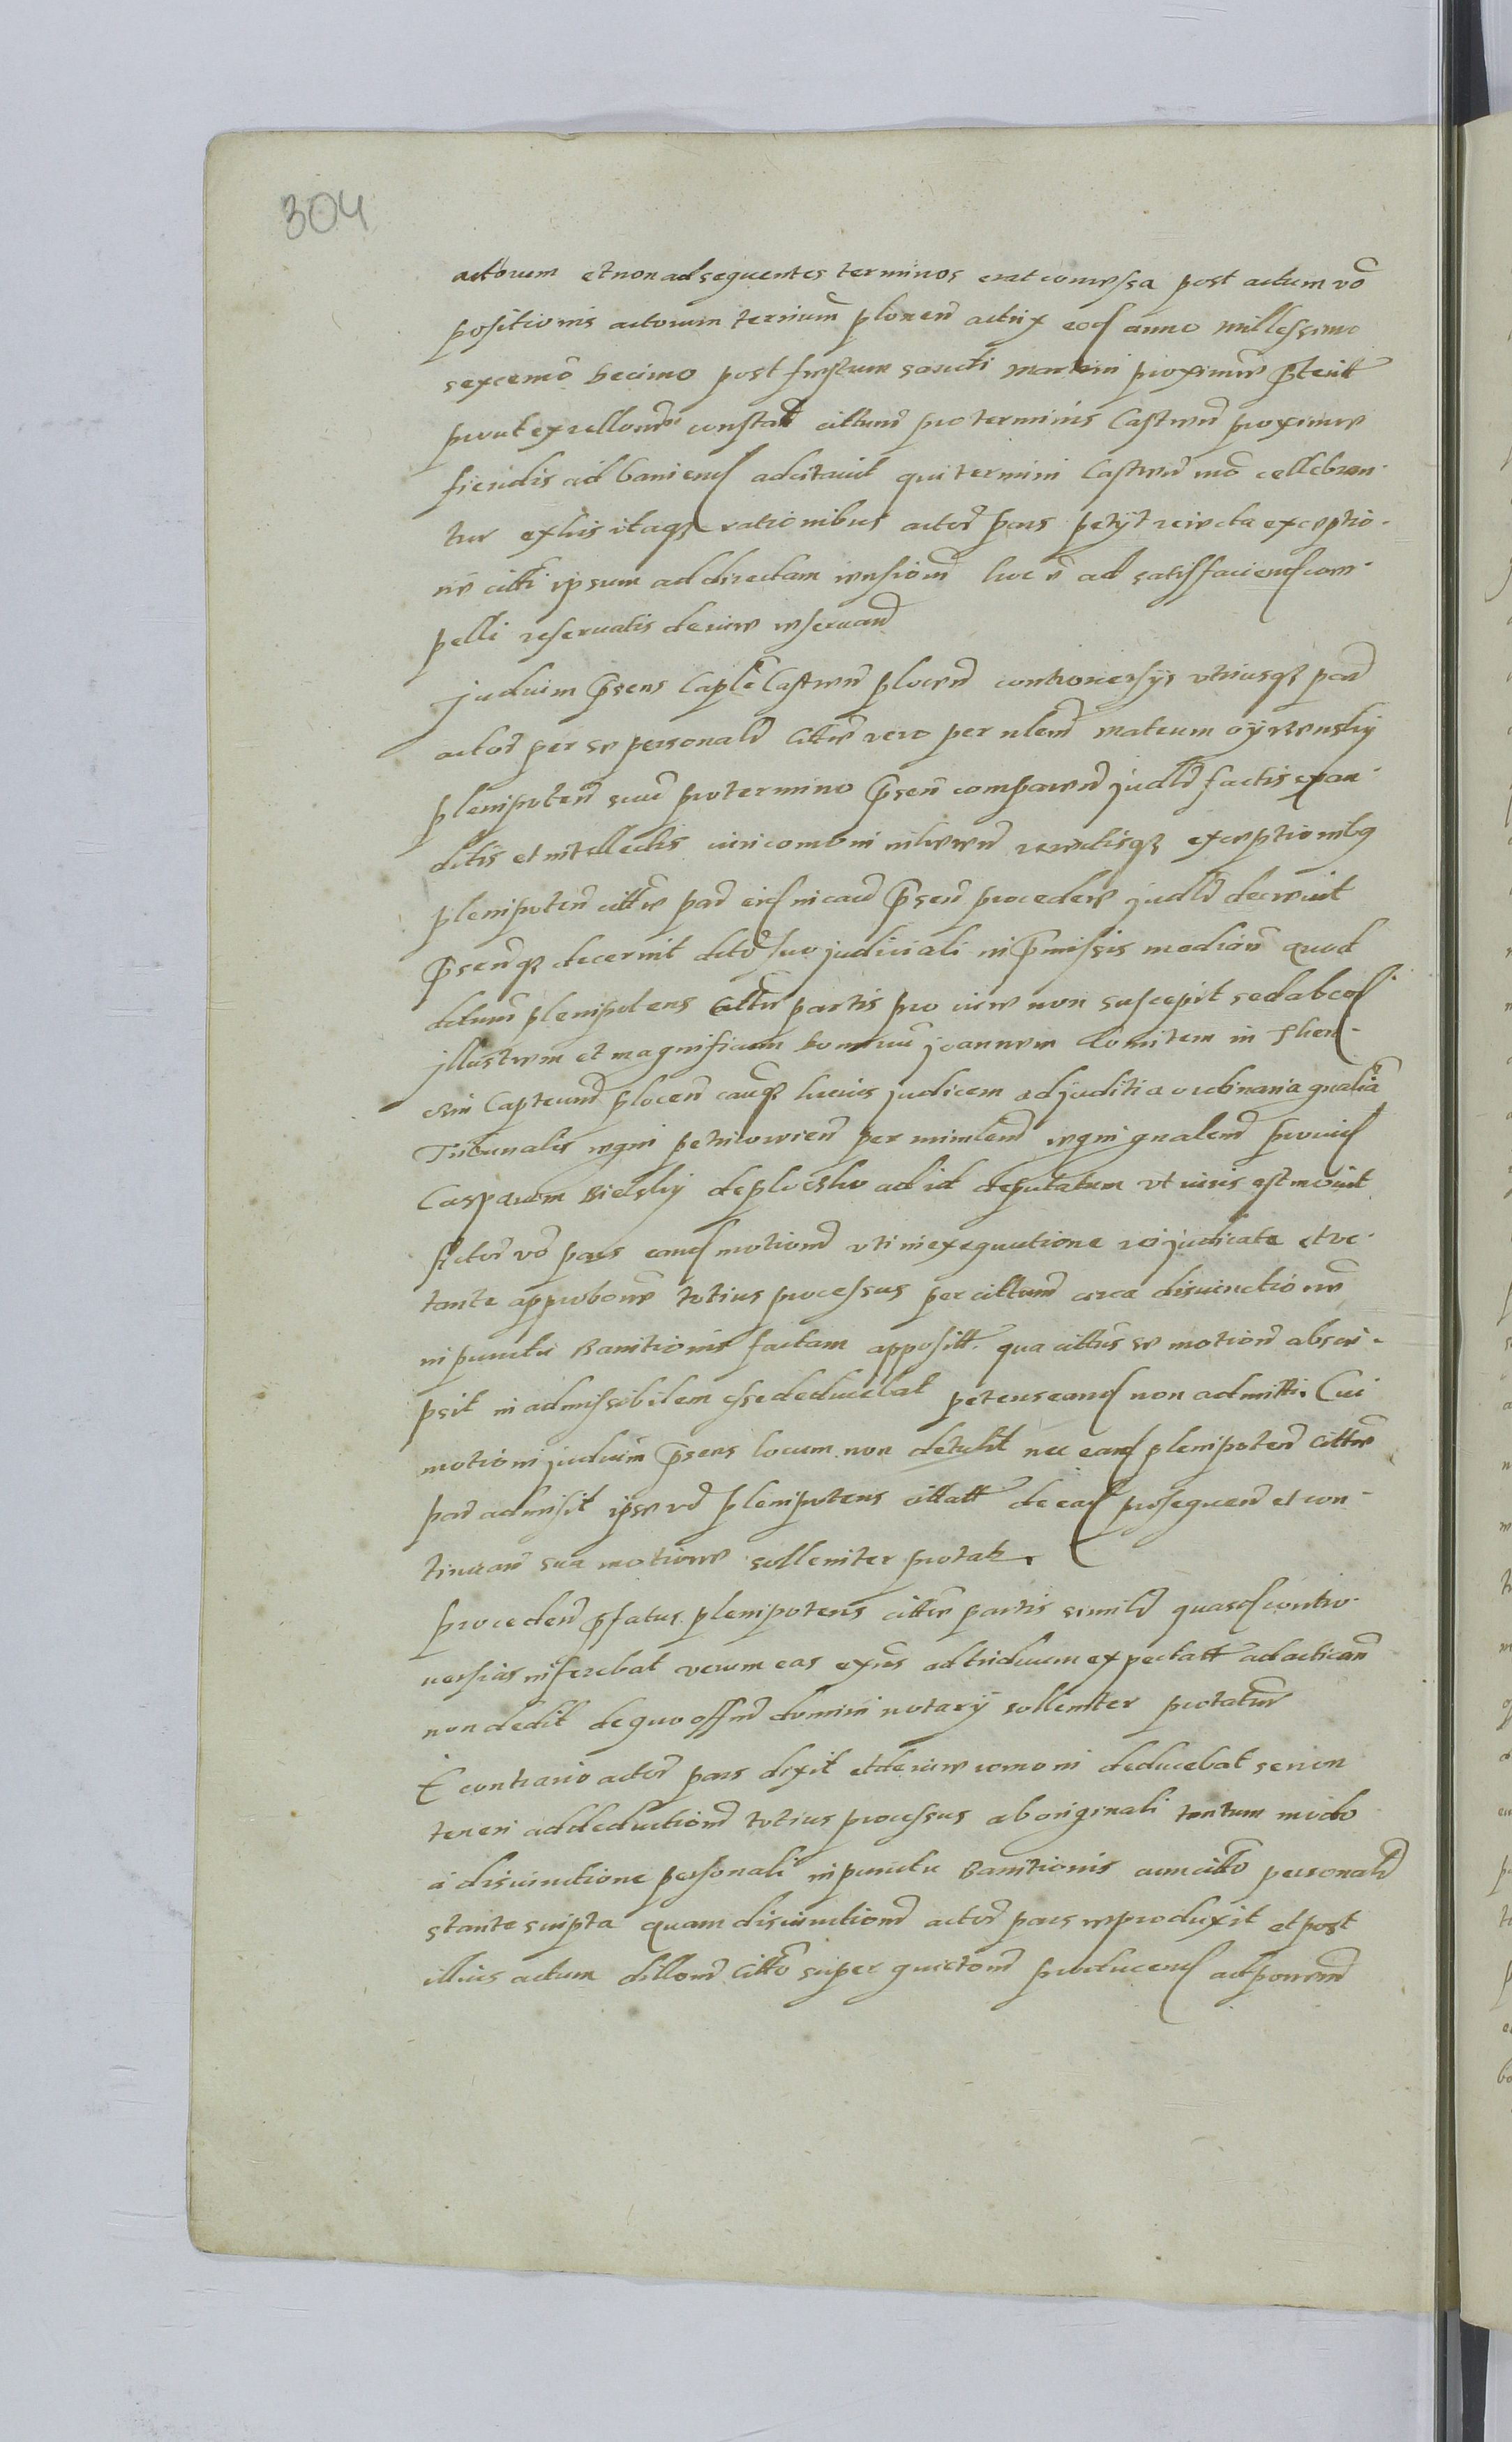 304
actorum et non ad sequentes terminos erat conversa post actum vō
positionis actorum terrium plocen actrix eod anno millessimo
sexcenō decimo post festum sancti Martini proximū
prout ex rellone constat citum pro terminis Castren proxime
fiendis ad baniend adcitavit qui termini Castren mō cellebran-
tur ex his itaq rationibus actor pars petÿt reiecta exceptio-
ne citti ipsum ad directam hoc ē ad satisfaciend com-
pelli reservatis de iure reservand
Judicium prsens Caple Castren plocen controversÿs utriusq par
actor per se personalr citte vero per nlem Mateum
plenipoten suū pro termino prsen comparen judlr factis exau-
ditis et intellectis iuri comūni inheren reiectisq exceptionibq
plenipoten citte par eid in cau prsen procedere judlr decrevit
prsenq decernit decto suo judiciali in prmissis median quod
dectum plenipotens citte partis pro iure non suscepit sed ab eod
jllustrem et magnificum Dominū Joannem Comitem in Then-
czin Capteum plocen cauq huius judicem ad juditia ordinaria gnalia
Tribunalis regni petricovien per mimlem regni gnalem provid
Casparum Bielsky de plocsko ad id deputatum ut iuris est movit
Actor vō pars eand motionem uti in exequutione rei judicate et
tante approbone totius processus per cittum circa disiunctionē
in puncto Banitionis factam apposit qua cittus se motione abscri-
psit in admissibilem esse deducebat petens eand non admitti. Cui
motioni judiciūm prsens locum non detulit nec eand plenipoten citte
par admisit ipse vō plenipotens cittatt de ead prosequen et con-
tinuan sua motione solleniter protatr.
Proceden prfatus plenipotens citte partis similr quasd contro-
versias inferebat verum eas expns ad triduum expectatt ad actican
non dedit de quo offm domini notarÿ solleniter protatur
E contrario actor pars dixit et de iure comoni deducebat se non
teneri ad deductionem totius processus ab originali tantum modo
a disiunctione personali in puncto Banitionis cum citto personalr
stante scripta quam disiunctionem actor pars reproduxit et post
illius actum dillonem citto super quictonem producend ad ponend